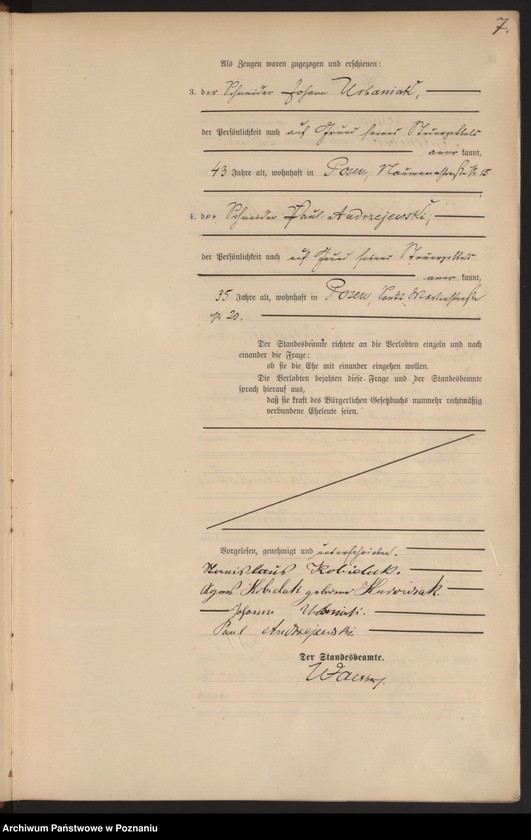 7.
Als Zeugen waren zugezogen und erschienen:
3. der Schneider Johann Urbaniak,
der Persönlichkeit nach auf Grund seines Steuerzettels
anerkannt,
43 Jahre alt, wohnhaft in Posen, Naumannstraße № 15
4. der Schneider Paul Andrzejewski,
der Persönlichkeit nach auf Grund seines Steuerzettels
anerkannt,
35 Jahre alt, wohnhaft in Posen, Sankt Martinstraße
№ 20.
Der Standesbeamte richtete an die Verlobten einzeln und nach
einander die Frage:
ob sie die Ehe mit einander eingehen wollen.
Die Verlobten bejahten diese Frage und der Standesbeamte
sprach hierauf aus,
daß sie kraft des Bürgerlichen Gesetzbuchs nunmehr rechtmäßig
verbundene Eheleute seien.
Vorgelesen, genehmigt und unterschrieben.
Stanislaus
Agnes geborene
Johann Urbaniak.
Paul Andrzejewski.
Der Standesbeamte.
Archiwum Państwowe w Poznaniu